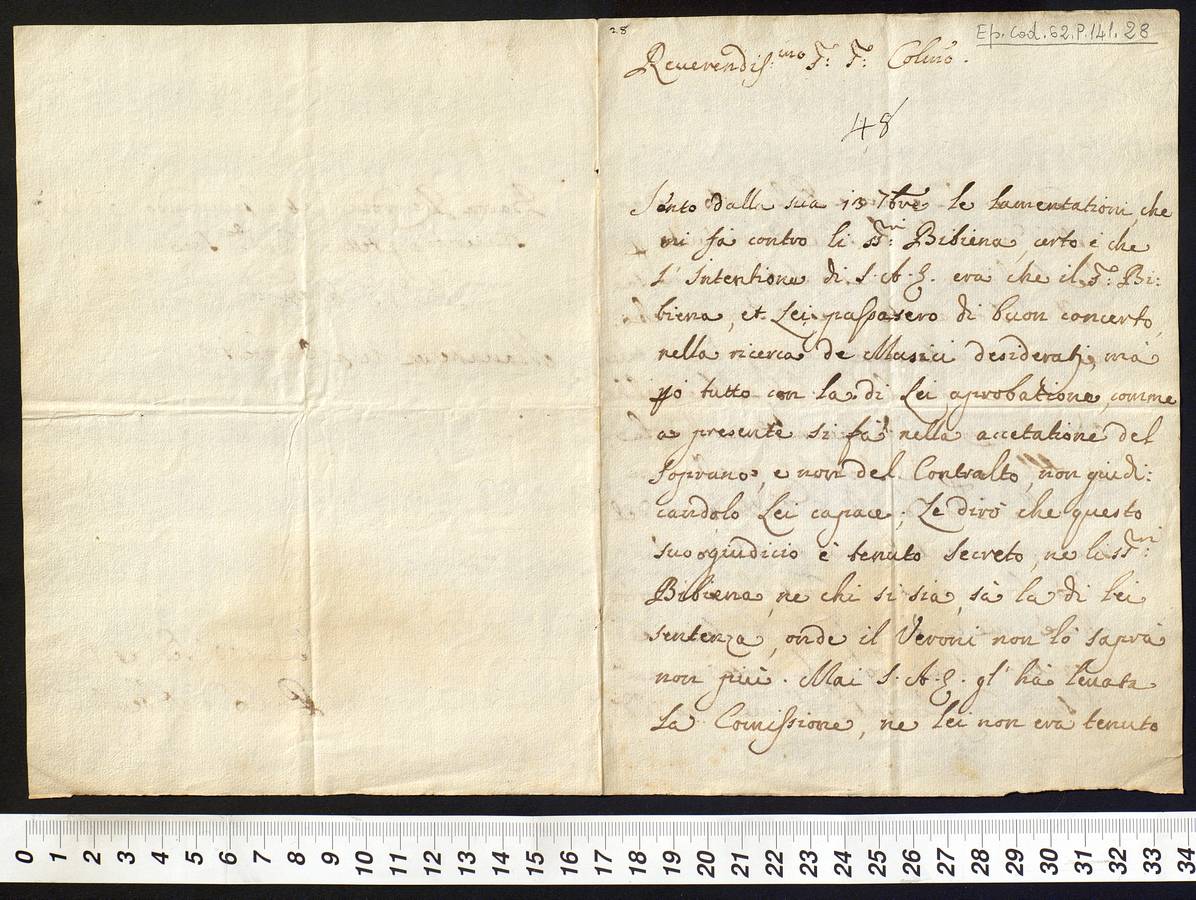 28
Ep. Cod. 62. P. 141. 28
Reverendis:mo Sr: Sr: Colmo.
48
Sento dalla sua 13 7bre le lamentationi, che
mi fà contro li SSri: Bibiena, certo è che
l'Intentione di S. A. E. era che il Sr: Bi:
biena, et Lei passasero di buon concerto,
nella ricerca de Musici desiderati, mà
però tutto con la di Lei aprobatione, comme
a presente si fà nella accetatione del
soprano, e non del Contralto, non giudi:
candolo Lei capace; Le dirò che questo
suo giudicio è tenuto secreto, ne li SSri:
Bibiena, ne chi si sia, sà la di lei
sentenza, onde il Veroni non lo saprà
non più. Mai S. A. E. gl' hà levata
la Comissione, ne lei non erà tenuto
0 1 2 3 4 5 6 7 8 9 10 11 12 13 14 15 16 17 18 19 20 21 22 23 24 25 26 27 28 29 30 31 32 33 34